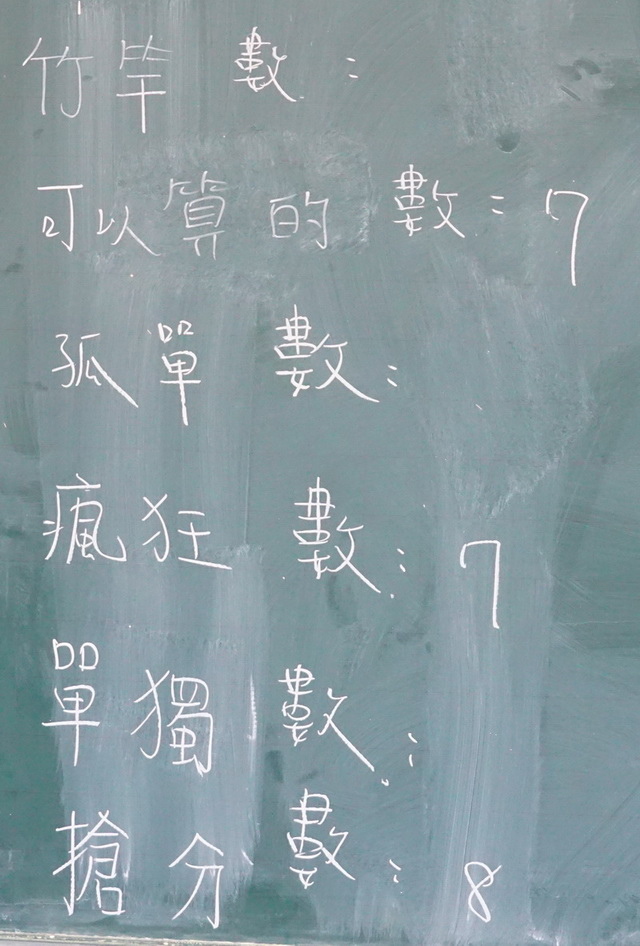 竹竿數:
可以算的數:7
孤單數:
瘋狂數:7
單獨數:
搶分數:8